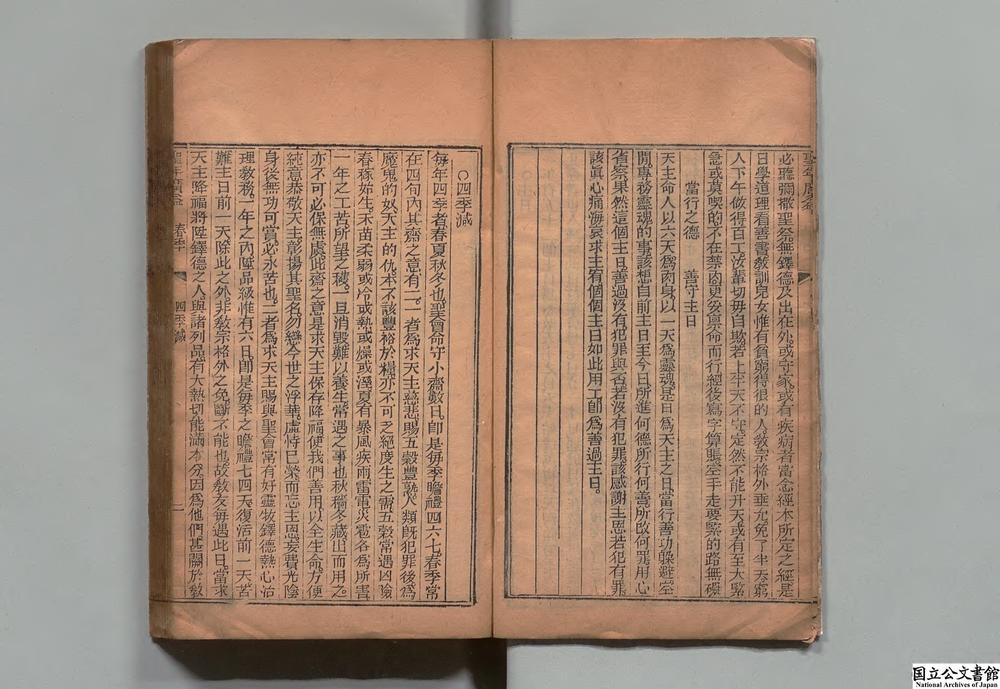 必聽彌撒聖祭無鐸德及出在外或守家或有疾病者當念經本所定之經是
日學道理看善書教訓兒女惟有貧窮得很的人教宗格外垂允免了半天窮
人下午做得百工汝輩切毋自欺若上半天不守定然不能升天或有至大緊
急或莫喫的不在禁內更妥稟命而行經後寫字算賬空手走要緊的路無礙
當行之德 善守主日
天主命人以六天為肉身以一天為靈魂是日為天主之日當行善功躲避空
閒專務靈魂的事該想自前主日至今日所進何德所行何善所改何罪用心
省察果然這個主日善過沒有犯罪與否若沒有犯罪該感謝主恩若犯有罪
該眞心痛悔哀求主宥個個主日如此用工卽為善過主日
○四季減
每年四季者春夏秋冬也聖會命守小齋數日卽是每季瞻禮四六七春季常
在四旬內其齋之意有二一者為求天主慈悲賜五穀豐熟人類旣犯罪後為
魔鬼的奴天主的仇本不該豐裕於糧亦不可乏絕度生之需五穀常遇凶險
春稼始生禾苗柔弱或冷或熱或燥或溼夏有暴風疾雨雷電災雹各為所害
一年之工苦所望之穫一旦消毀難以養生常遇之事也秋穡冬藏出而用之
亦不可必保無處此齋之意是求天主保存降福使我們善用以全生命方便
純意恭敬天主彰揚其聖名勿戀今世之浮華虛恃已榮而忘主恩妄費光陰
身後無功可賞必永苦也二者為求天主賜與聖會常有好靈牧鐸德熱心治
理教務一年之內陞品級惟有六日卽是每季之瞻禮七四天復活前一天苦
難主日前一天除此之外非教宗格外之免斷不能也故教友每遇此日當求
天主降福將陞鐸德之人與諸列品有大熱切能滿本分因為他們甚關於教
聖年廣益 春季 四季減 一
国立公文書館
National Archives of Japan